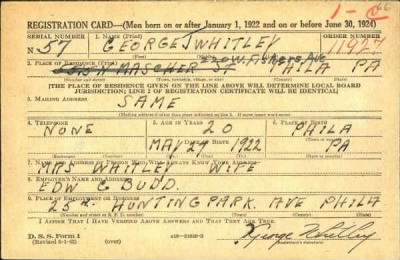 1-C
66
REGISTRATION CARD—(Men born on or after January 1, 1922 and on or before June 30, 1924)
SERIAL NUMBER 1. NAME (Print) ORDER NUMBER
N. 57 GEORGE J WHITLEY 11927
220 W. FISHERS AVE
2. PLACE OF RESIDENCE (Print)
N MASCHER ST PHILA PA
[THE PLACE OF RESIDENCE GIVEN ON THE LINE ABOVE WILL DETERMINE LOCAL BOARD
JURISDICTION; LINE 2 OF REGISTRATION CERTIFICATE WILL BE IDENTICAL]
3. MAILING ADDRESS
SAME
4. TELEPHONE 5. AGE IN YEARS 6. PLACE OF BIRTH
NONE 20 PHILA
DATE OF BIRTH
MAY 27 1922 PA
7. NAME AND ADDRESS OF PERSON WHO WILL ALWAYS KNOW YOUR ADDRESS
MRS WHITLEY WIFE
8. EMPLOYER'S NAME AND ADDRESS
EDW G BUDD.
9. PLACE OF EMPLOYMENT OR BUSINESS
HUNTING PARK. AVE PHILA
I AFFIRM THAT I HAVE VERIFIED ABOVE ANSWERS AND THAT THEY ARE TRUE.
D. S. S. Form 1
(Revised 6-1-42)
George Whitley